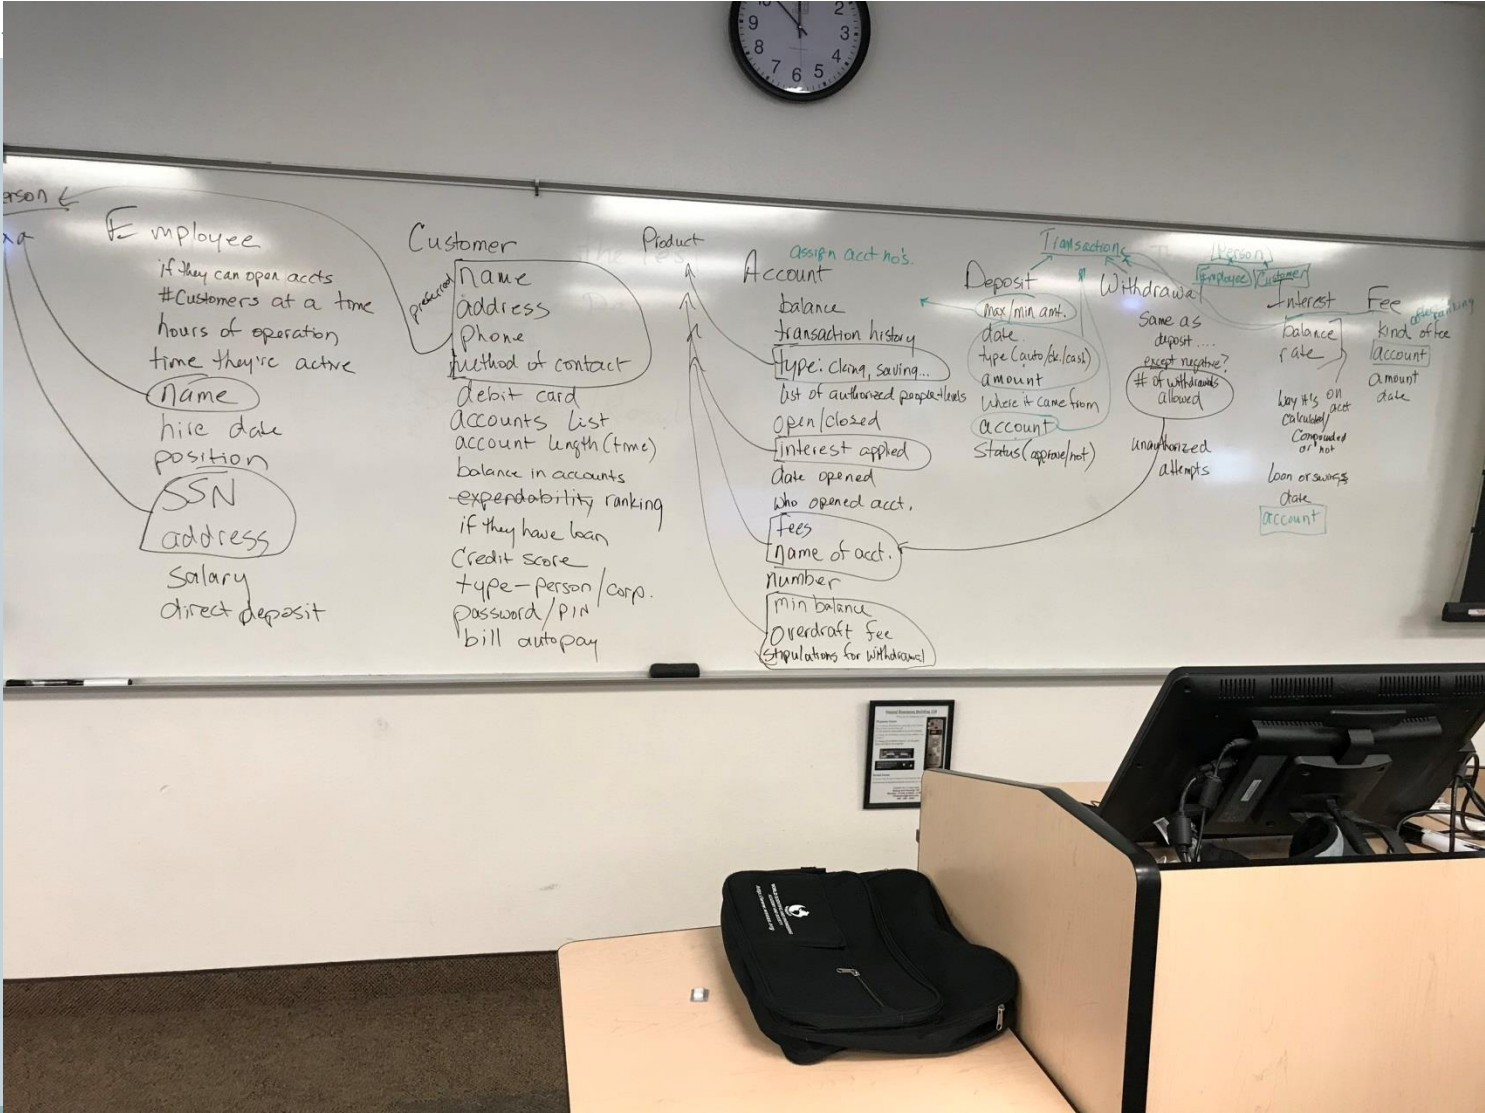 erson
Employee
if they can open accts
#Customers at a time
hours of operation
time they're active
name
hire date
position
SSN
address
salary
direct deposit
Customer
preferred
name
address
phone
method of contact
debit card
accounts list
account length (time)
balance in accounts
expendability ranking
if they have loan
credit score
type-person/corp.
password/PIN
bill autopay
Product
assign acct no's.
Account
balance
transaction history
type: cking, saving...
list of authorized people+levels
open/closed
interest applied
date opened
who opened acct.
fees
name of acct.
number
min balance
overdraft fee
stipulations for withdrawal
Transactions
Deposit
max/min amt.
date
type (auto/ck./cash)
amount
where it came from
account
status (approve/not)
Withdrawal
same as
deposit....
except negative?
# of withdrawals
allowed
unauthorized
attempts
[Person]
Employee Customer
Interest
balance
rate
way it's on
acct
calculated/
compounded
or not
loan or savings
date
account
Fee
ranking
kind of fee
account
amount
date
9
8
7
6
5
4
3
2